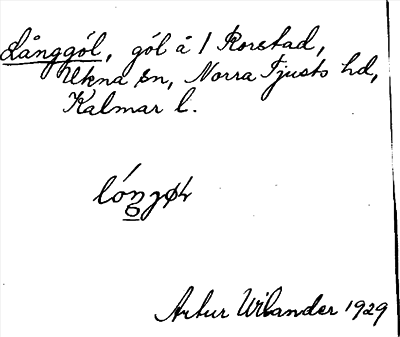 Långgöl, göl å 1 Rorstad,
Ukna sn, Norra Tjusts hd,
Kalmar l.
Artur Wilander 1929